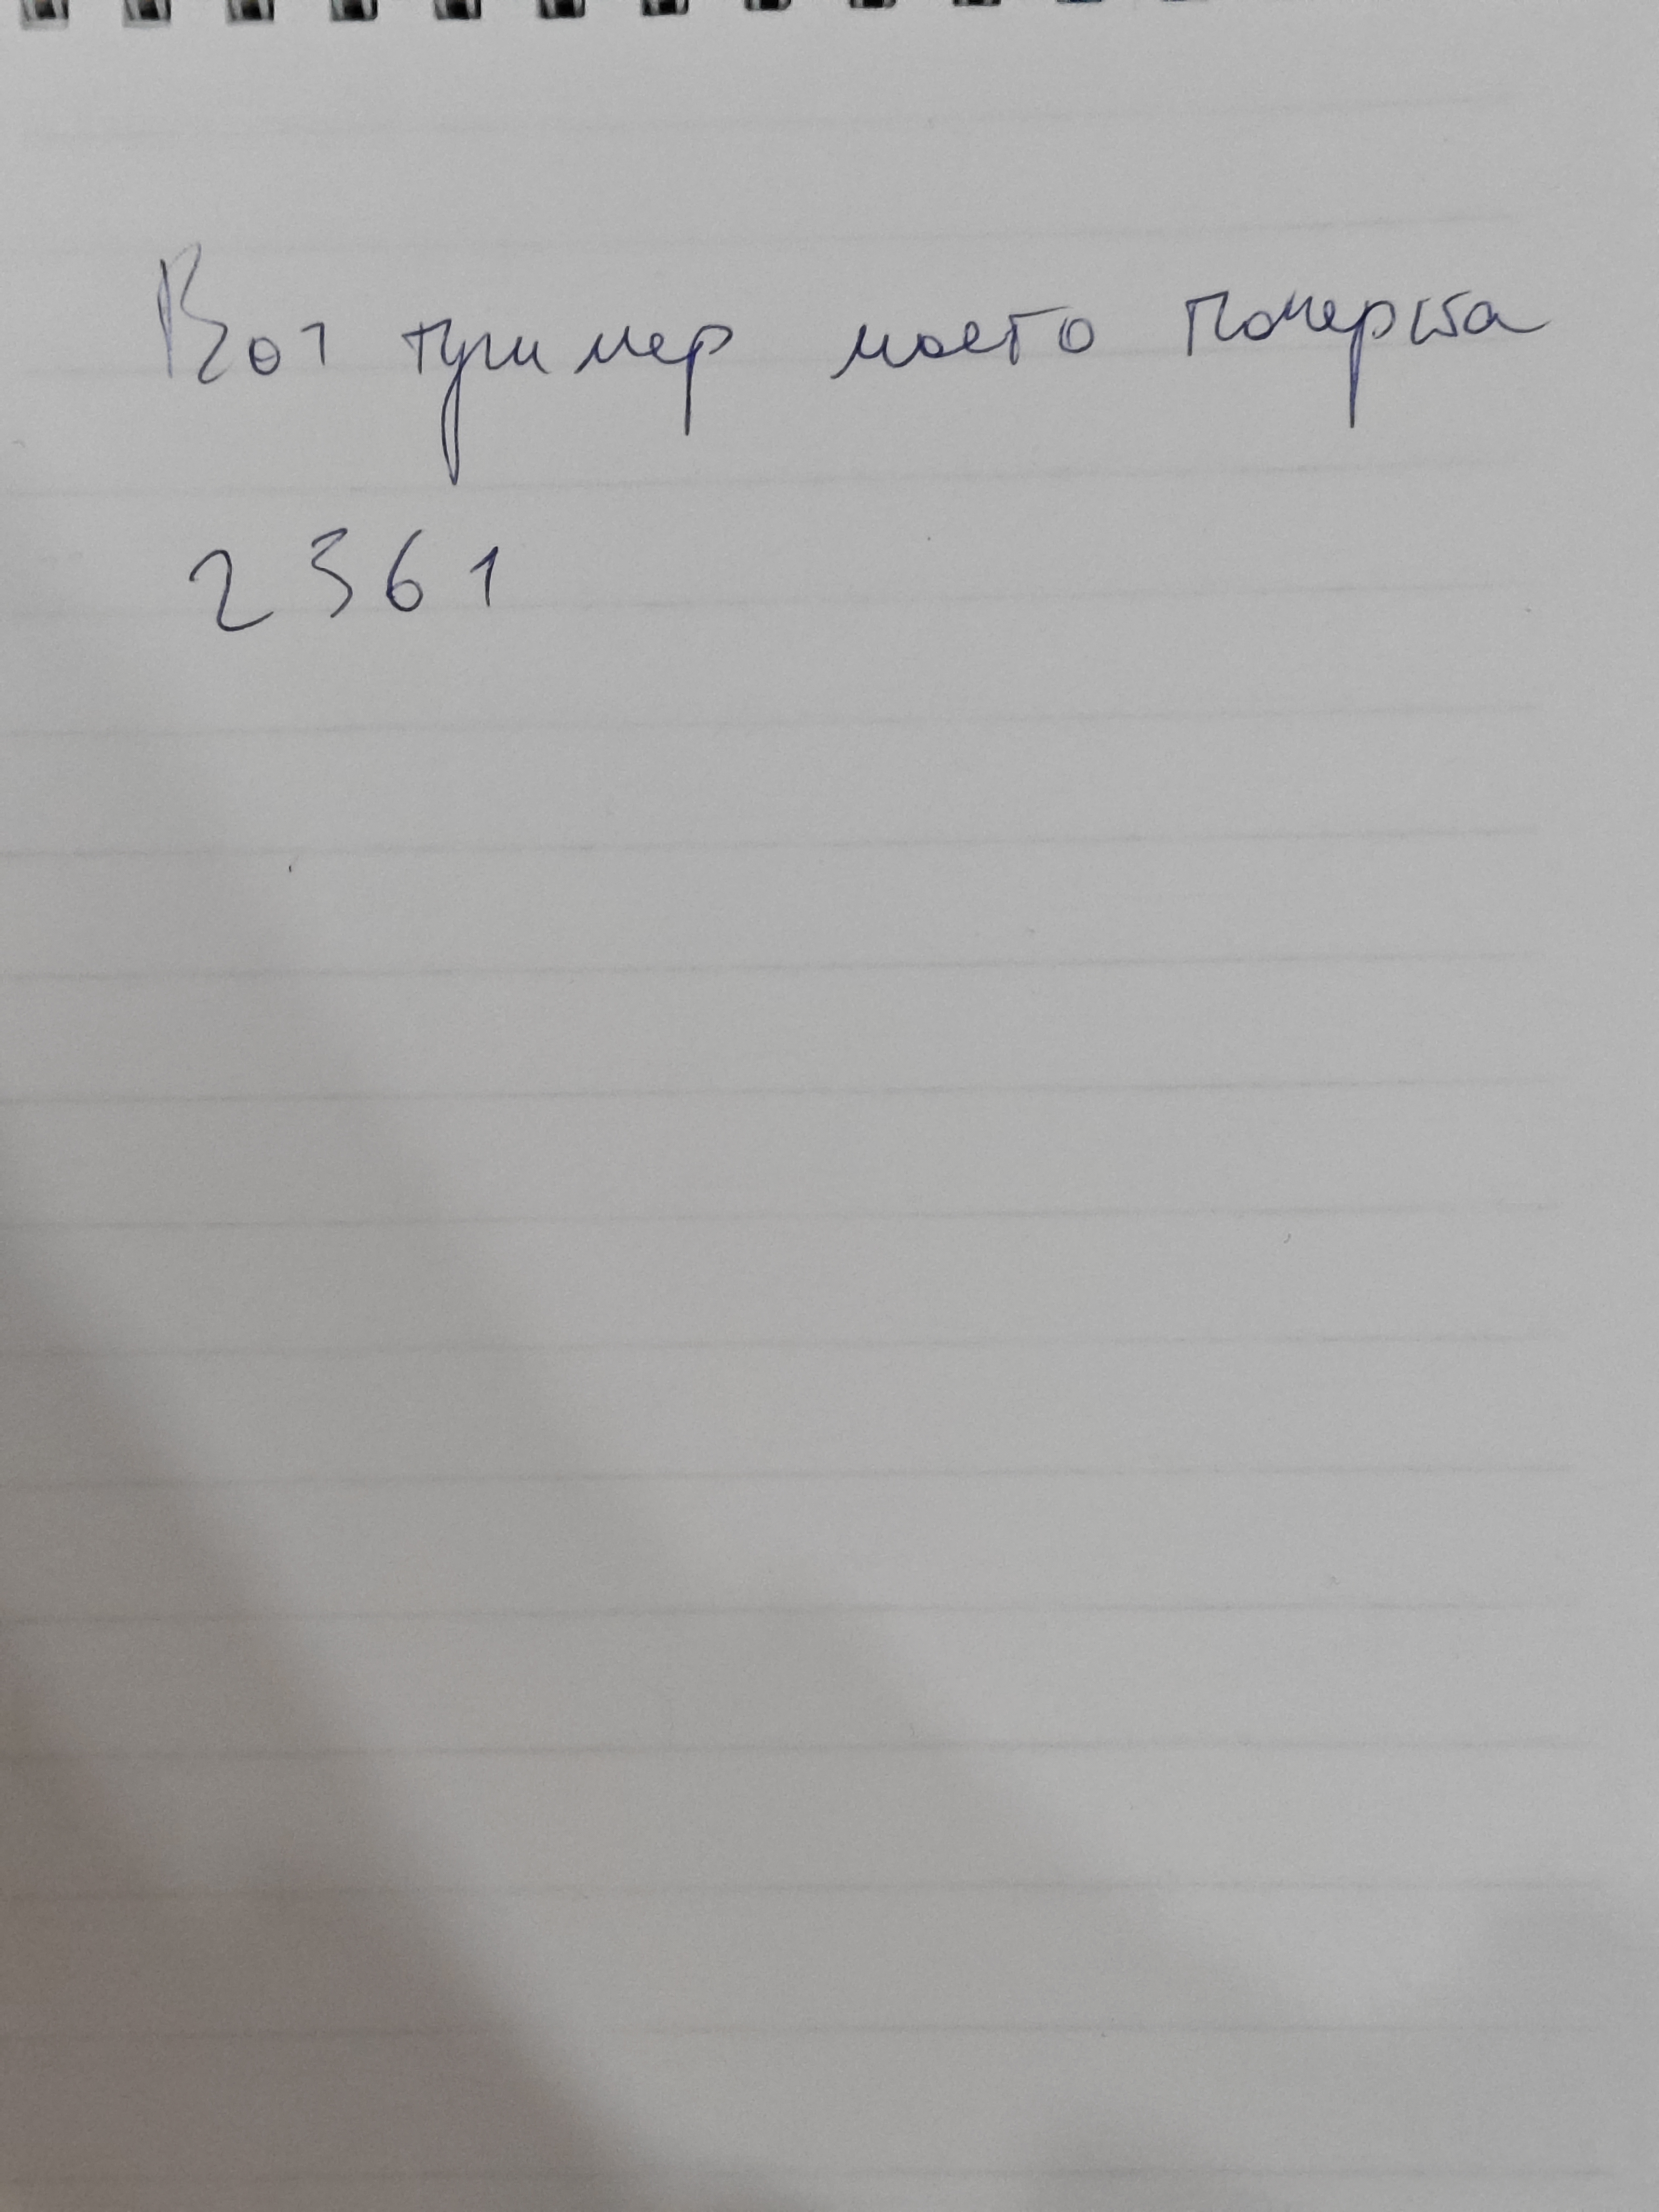 Вот пример моего почерка
2361